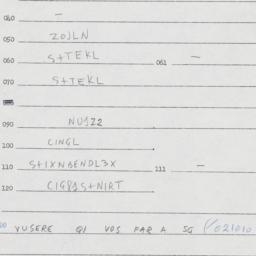 040 —
050 ZOJLN
060 S+TEKL 061 —
070 S+TEKL
090 NUSZ2
100 CINGL
110 S+IXNBENDL3X 111 —
120 S+NIRT
VUSERE QI VOS FAR A SG